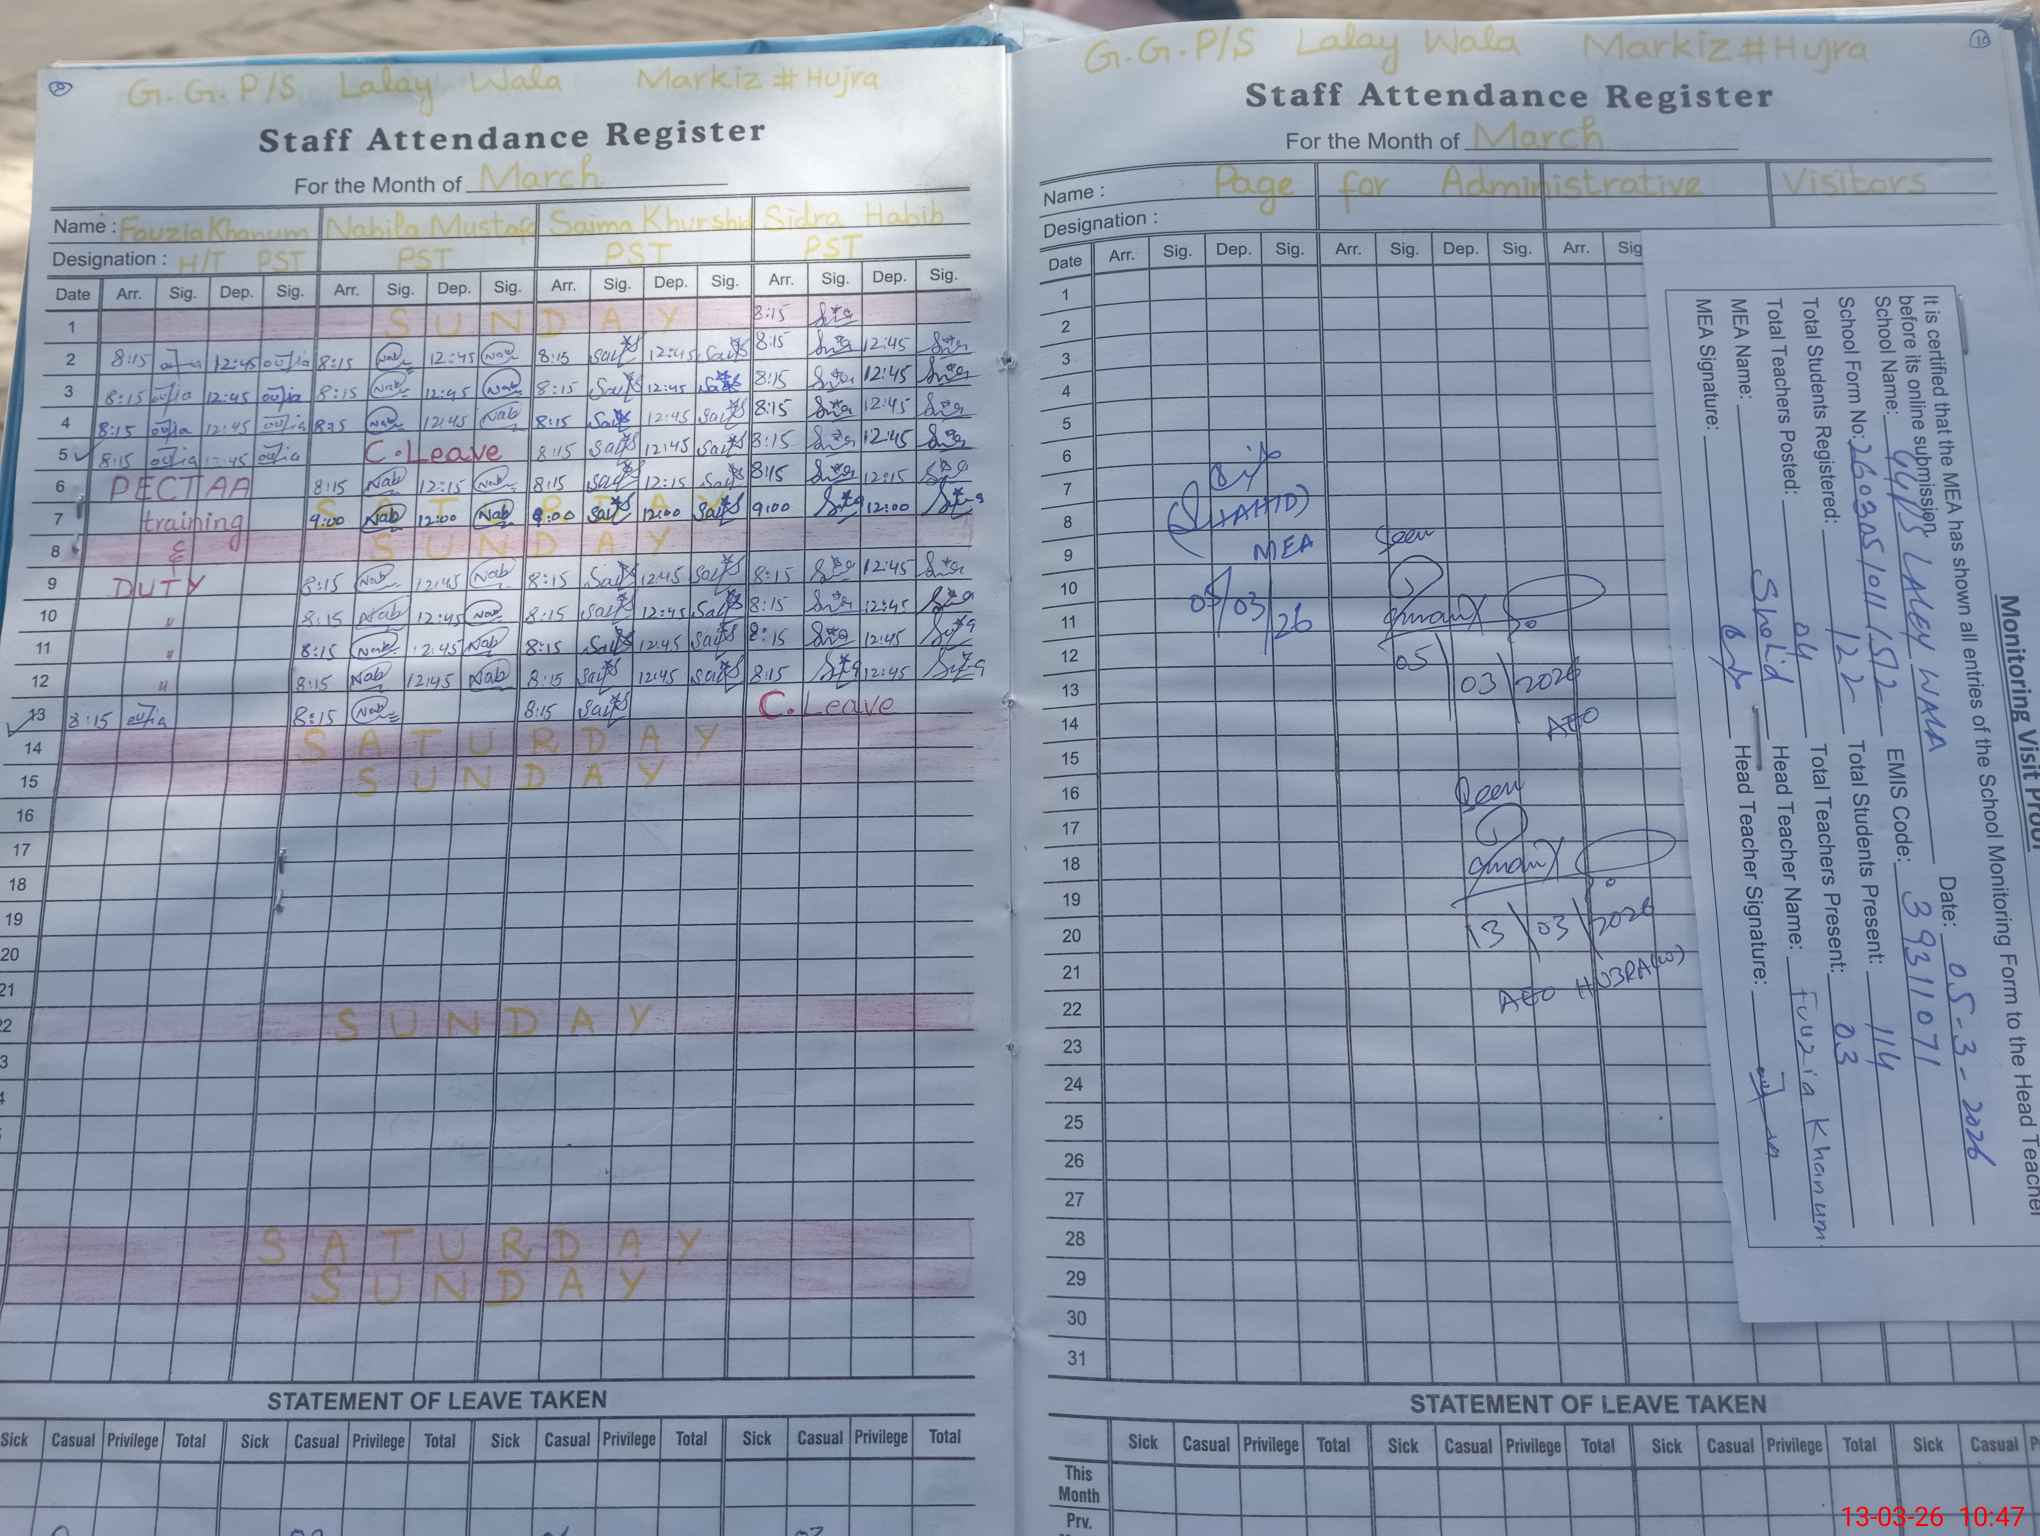 G.G.P/S Lalay Wala Markiz # Hujra
Staff Attendance Register
For the Month of March
Name : Fouzia Khanum Nabila Mustafa Saima Khurshid Sidra Habib
Designation : H/T PST PST PST PST
Date Arr. Sig. Dep. Sig. Arr. Sig. Dep. Sig. Arr. Sig. Dep. Sig. Arr. Sig. Dep. Sig.
1 SUNDAY 8:15
2 8:15 12:45 8:15 Nab 12:45 Nab 8:15 12:45 8:15 12:45
3 8:15 12:45 8:15 Nab 12:45 Nab 8:15 12:45 8:15 12:45
4 8:15 12:45 Nab 12:45 Nab 8:15 12:45 8:15 12:45
5 8:15 12:45 C.Leave 8:15 12:45 8:15 12:45
6 PECTAA 8:15 Nab 12:15 Nab 8:15 12:15 8:15 12:15
7 training SATURDAY 9:00 Nab 12:00 Nab 9:00 12:00 9:00 12:00
8 & SUNDAY
9 DUTY 8:15 Nab 12:45 Nab 8:15 12:45 8:15 12:45
10 " 8:15 Nab 12:45 Nab 8:15 12:45 8:15 12:45
11 " 8:15 Nab 12:45 Nab 8:15 12:45 8:15 12:45
12 " 8:15 Nab 12:45 Nab 8:15 12:45 8:15 12:45
13 8:15 8:15 Nab 8:15 C.Leave
14 SATURDAY
15 SUNDAY
16
17
18
19
20
21
22 SUNDAY
3
4
SATURDAY
SUNDAY
STATEMENT OF LEAVE TAKEN
Sick Casual Privilege Total Sick Casual Privilege Total Sick Casual Privilege Total Sick Casual Privilege Total
10
G.G.P/S Lalay Wala Markiz # Hujra
Staff Attendance Register
For the Month of March
Name : Page for Administrative Visitors
Designation :
Date Arr. Sig. Dep. Sig. Arr. Sig. Dep. Sig. Arr. Sig
1
2
3
4
5
6
7
8 (SHAHID)
9 MEA Seen
10
11 05/03/26
12 05/03/2026
13
14 AEO
15
16 Seen
17
18
19
20 13/03/2026
21
22 AEO HUJRA(W)
23
24
25
26
27
28
29
30
31
STATEMENT OF LEAVE TAKEN
Sick Casual Privilege Total Sick Casual Privilege Total Sick Casual Privilege Total Sick Casual P
This Month
Prv.
Monitoring Visit Proof
It is certified that the MEA has shown all entries of the School Monitoring Form to the Head Teacher
before its online submission. Date: 05-3-2026
School Name: GGPS LALEY WALA EMIS Code: 39311071
School Form No: Total Students Present: 114
Total Students Registered: 122 Total Teachers Present: 03
Total Teachers Posted: 04 Head Teacher Name: Fouzia Khanum
MEA Name: Shahid Head Teacher Signature:
MEA Signature:
13-03-26 10:47